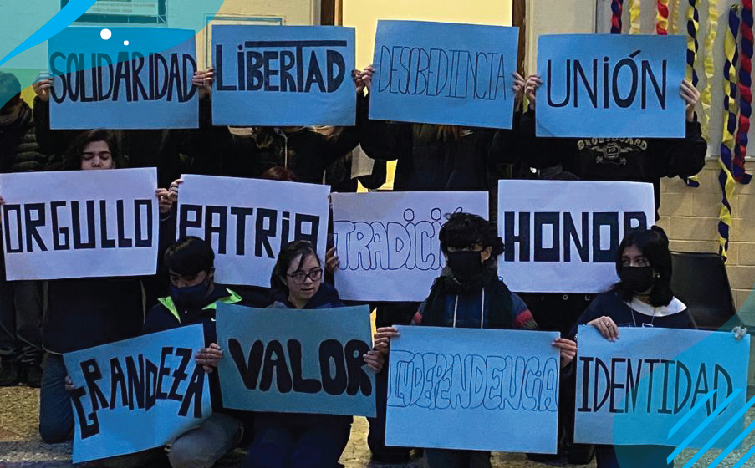 SOLIDARIDAD LIBERTAD DESOBEDIENCIA UNIÓN
ORGULLO PATRIA TRADICIÓN HONOR
GRANDEZA VALOR INDEPENDENCIA IDENTIDAD